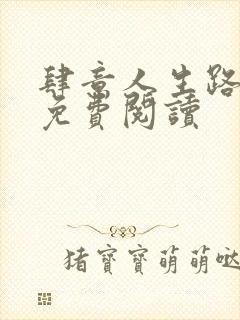 肆意人生路
免費閱讀
猪寶寶萌萌哒